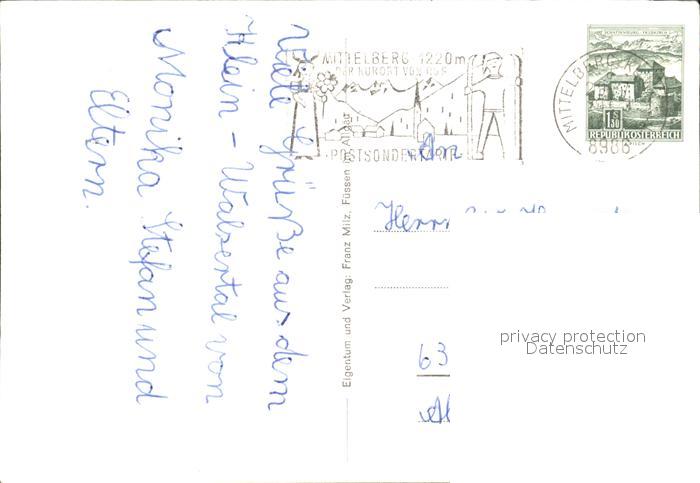 Viele Grüße aus dem
Klein - Walsertal von
Monika Stefan und
Eltern.
Eigentum und Verlag: Franz Milz, Füssen im Allgäu
MITTELBERG 1220m
DER KURORT VON RUF
POSTSONDERTARIF
MITTELBERG
8986
SCHATTENBURG - FELDKIRCH
1.50
REPUBLIK ÖSTERREICH
An
Herrn
63
privacy protection
Datenschutz